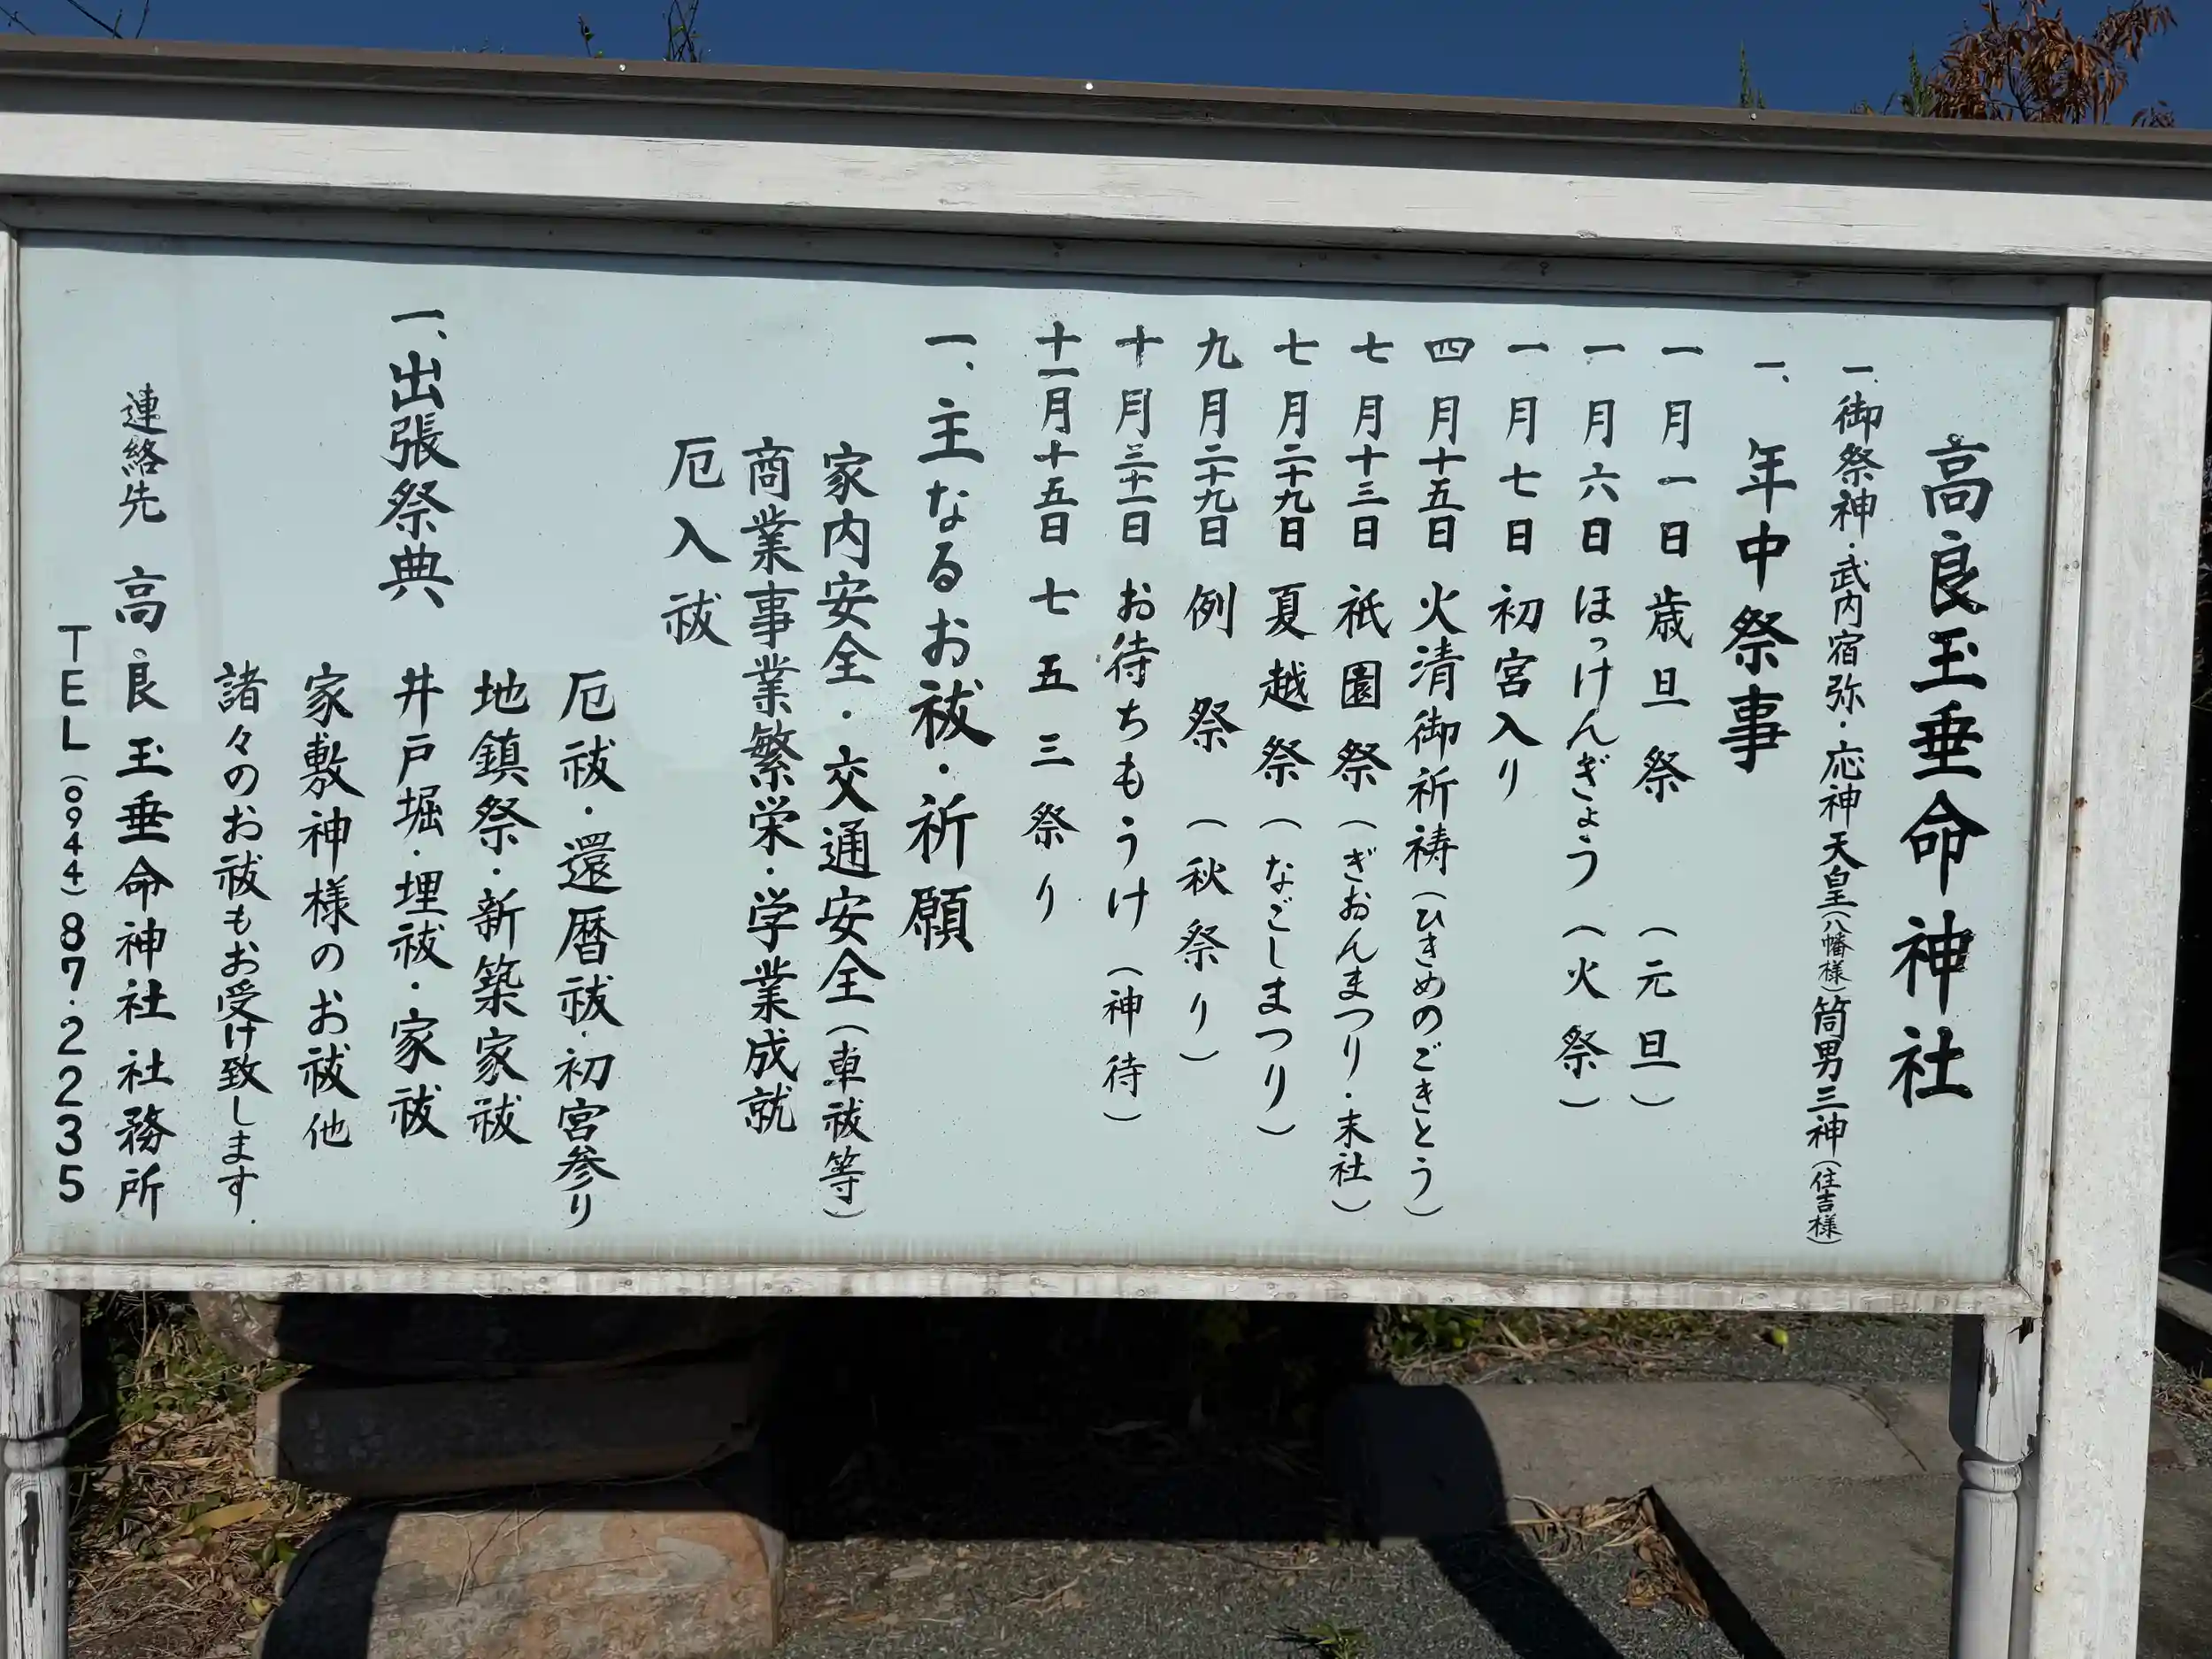 高良玉垂命神社
一、御祭神・武内宿弥・応神天皇(八幡様)筒男三神(住吉様)
一、年中祭事
一月一日 歳旦祭 (元旦)
一月六日 ほっけんぎょう (火祭)
一月七日 初宮入り
四月十五日 火清御祈祷(ひきめのごきとう)
七月十三日 祇園祭(ぎおんまつり・末社)
七月二十九日 夏越祭(なごしまつり)
九月二十九日 例祭 (秋祭り)
十月三十一日 お待ちもうけ (神待)
十一月十五日 七五三祭り
一、主なるお祓・祈願
家内安全・交通安全(車祓等)
商業事業繁栄・学業成就
厄入祓
厄祓・還暦祓・初宮参り
一、出張祭典
地鎮祭・新築家祓
井戸堀・埋祓・家祓
家敷神様のお祓他
諸々のお祓もお受け致します.
連絡先 高良玉垂命神社社務所
TEL(0944)87・2235